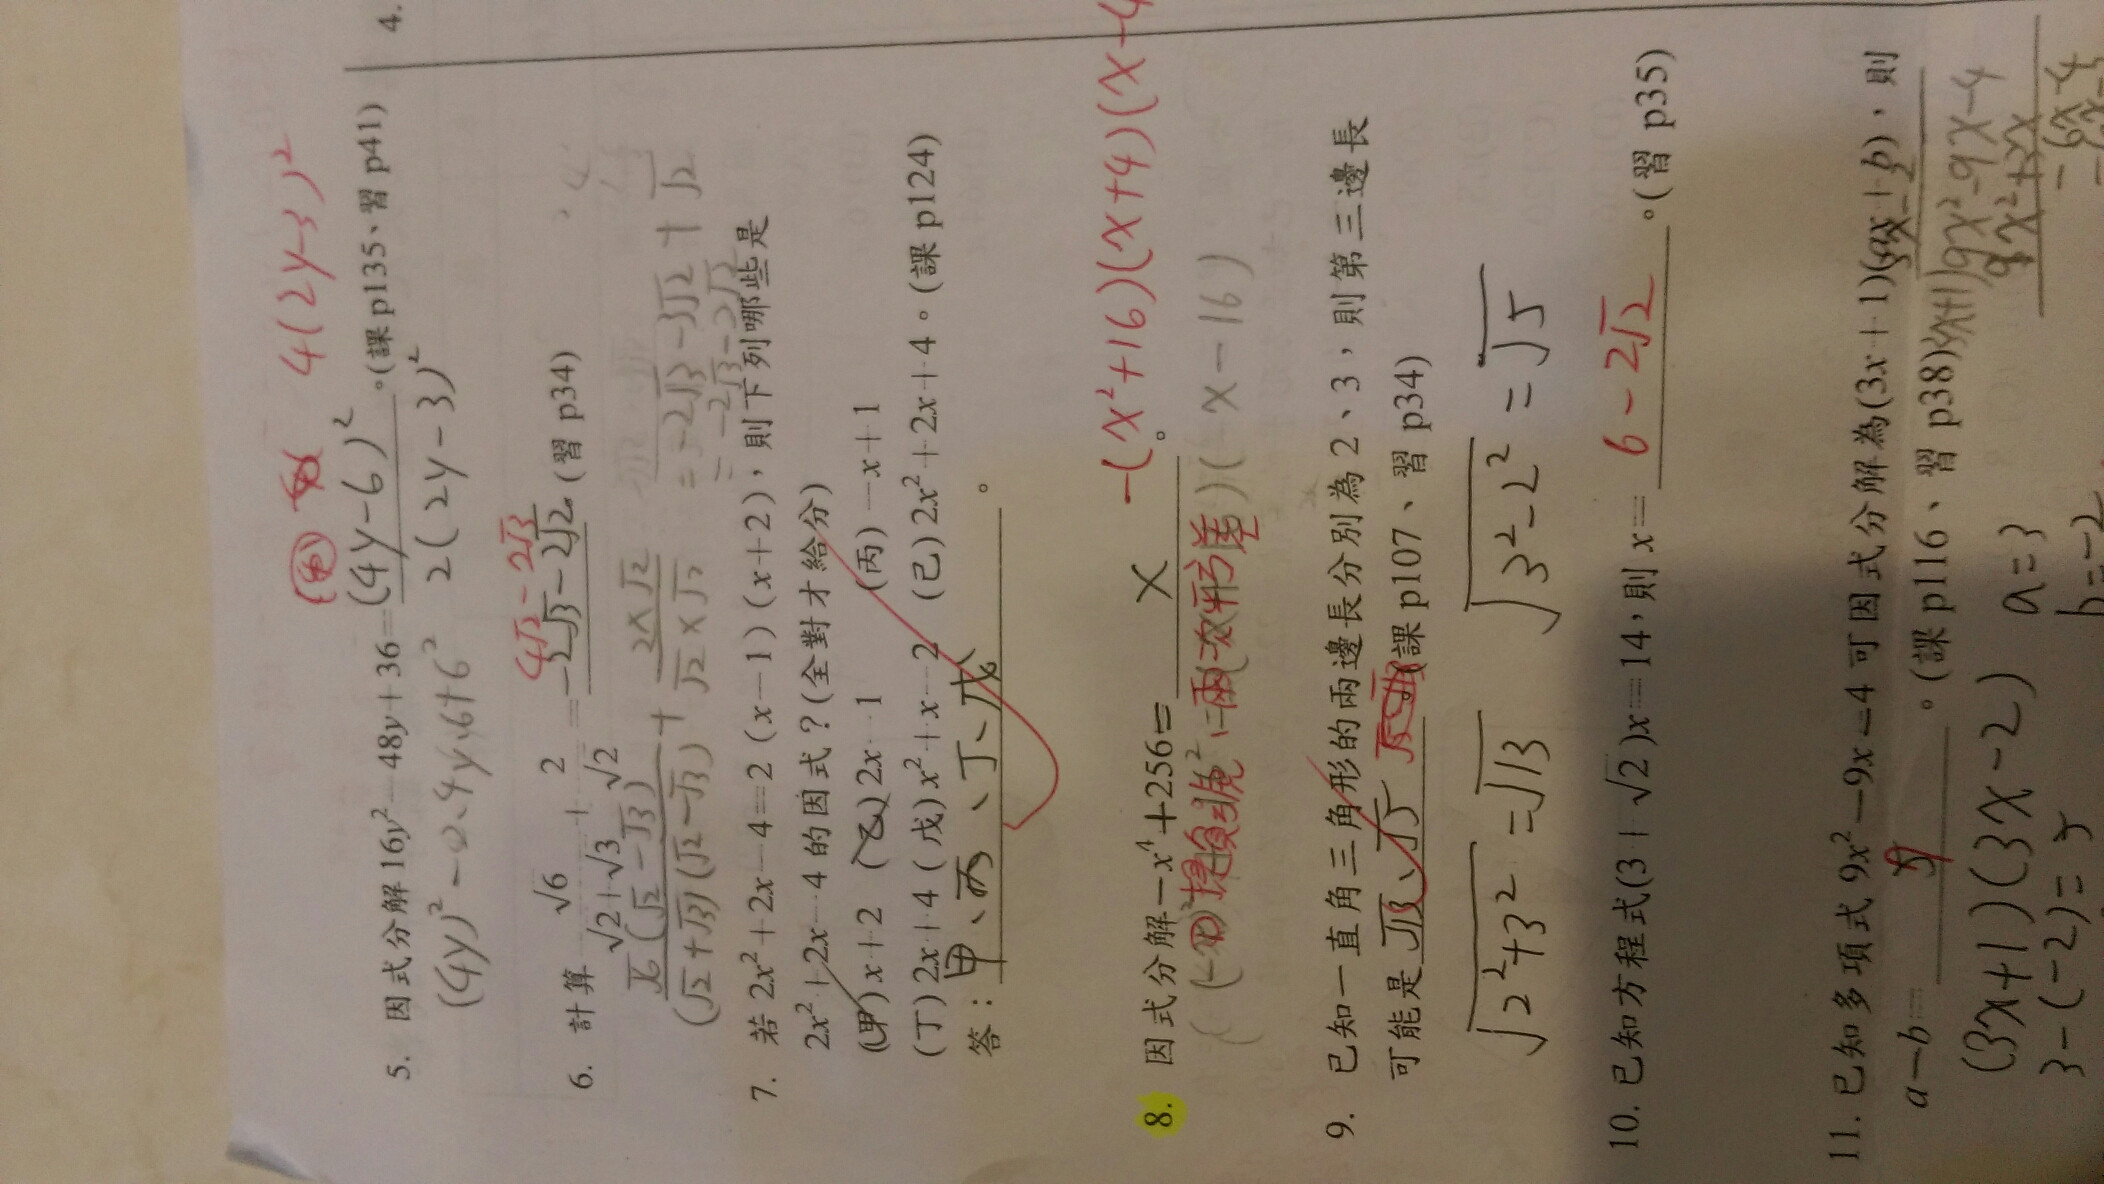 4.
4(2y-3)²
5. 因式分解16y²-48y+36=(4y-6)²。(課p135、習p41)
(4y)²-2.4y.6+6² 2(2y-3)²
4√2-2√3
6. 計算 √6/(√2+√3) + 2/√2 = -2√3-2√2。(習p34)
√6(√2-√3)/(√2+√3)(√2-√3) + 2×√2/√2×√2
7. 若2x²+2x-4=2(x-1)(x+2)，則下列哪些是
2x²+2x-4的因式？(全對才給分)
(甲)x+2 (乙)2x-1 (丙)-x+1
(丁)2x+4 (戊)x²+x-2 (己)2x²+2x+4。(課p124)
答：甲、丙、丁、戊。
8. 因式分解-x⁴+256= x 。 -(x²+16)(x+4)(x-4
提負號 兩次形差
(x-16)
9. 已知一直角三角形的兩邊長分別為2、3，則第三邊長
可能是√13、√5 (課p107、習p34)
√2²+3² =√13 √3²-2² =√5
10. 已知方程式(3+√2)x=14，則x= 6-2√2 。(習p35)
11. 已知多項式9x²-9x-4可因式分解為(3x+1)(ax+b)，則
a-b= 。(課p116、習p38)
3x+1)9x²-9x-4
(3x+1)(3x-2) a=3
3-(-2)=5 b=-2